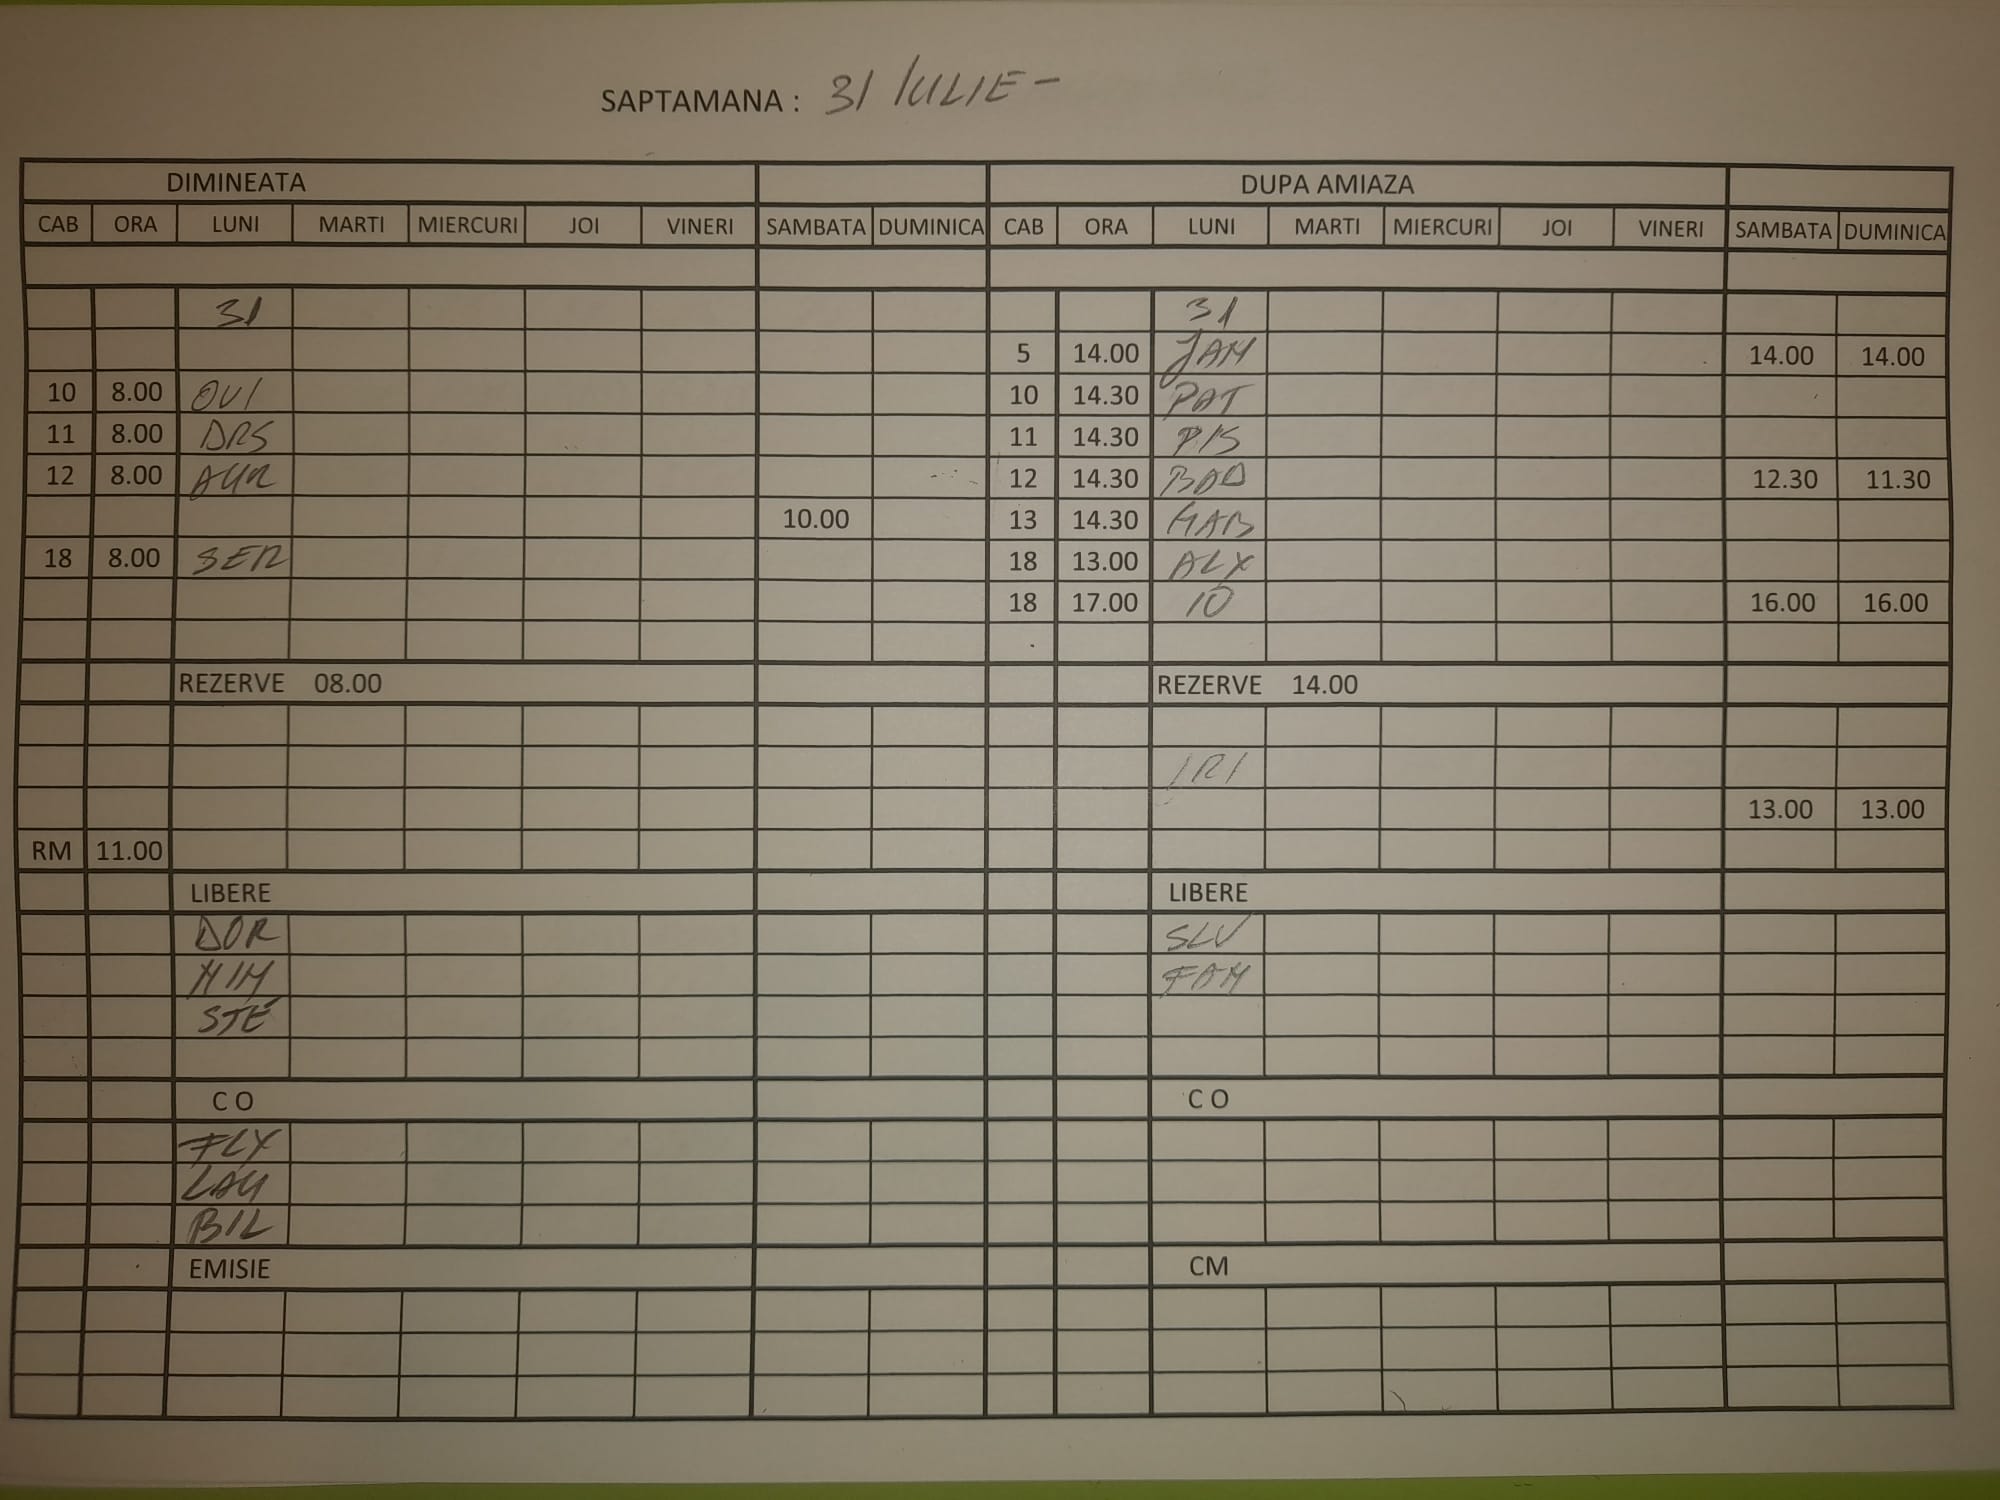 SAPTAMANA : 31 IULIE -
DIMINEATA DUPA AMIAZA
CAB ORA LUNI MARTI MIERCURI JOI VINERI SAMBATA DUMINICA CAB ORA LUNI MARTI MIERCURI JOI VINERI SAMBATA DUMINICA
31 31
5 14.00 JAM 14.00 14.00
10 8.00 OVI 10 14.30 PAT
11 8.00 DRS 11 14.30 PIS
12 8.00 AUR 12 14.30 BAD 12.30 11.30
10.00 13 14.30 GAB
18 8.00 SER 18 13.00 ALX
18 17.00 IO 16.00 16.00
REZERVE 08.00 REZERVE 14.00
IRI
13.00 13.00
RM 11.00
LIBERE LIBERE
DOR SLV
MIM FAM
STE
C O C O
FLX
LAU
BIL
EMISIE CM